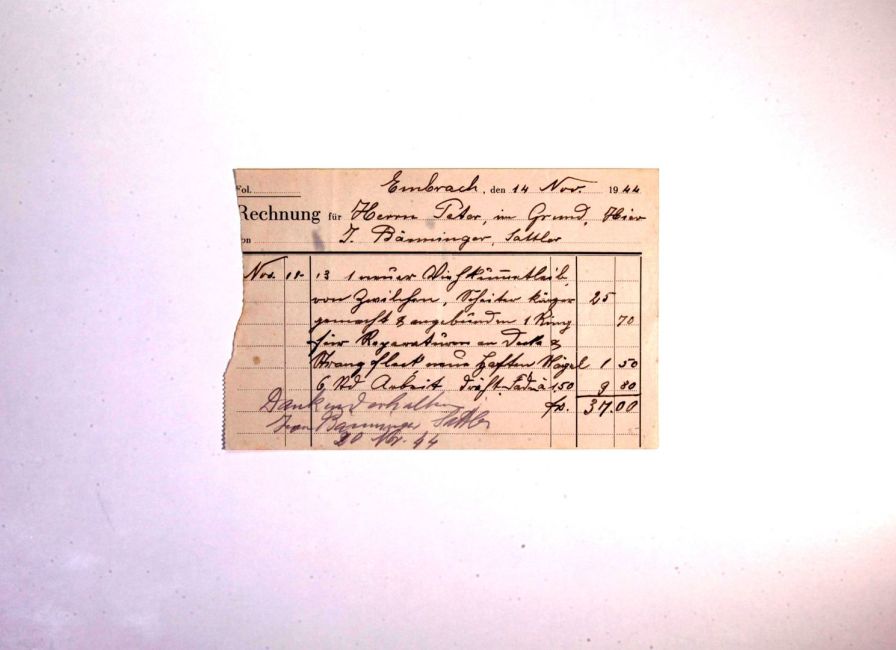 Fol.
Embrach, den 14 Nov. 1944
Rechnung für Herrn Peter, im Grund, Hier
on J. Bänninger, Sattler
Nov. 11. 13 1 neuer Viehkummetleib,
von Zwilchen, Scheiter kürzer 25
gemacht & angebunden 1 Ring 70
für Reparaturen an Decke &
Strangfleck neue Haften Nägel 1 50
6 Std Arbeit, à 1.50 9 80
Dankend erhalten fr. 37.00
Bänninger Sattler
20 Nov. 44